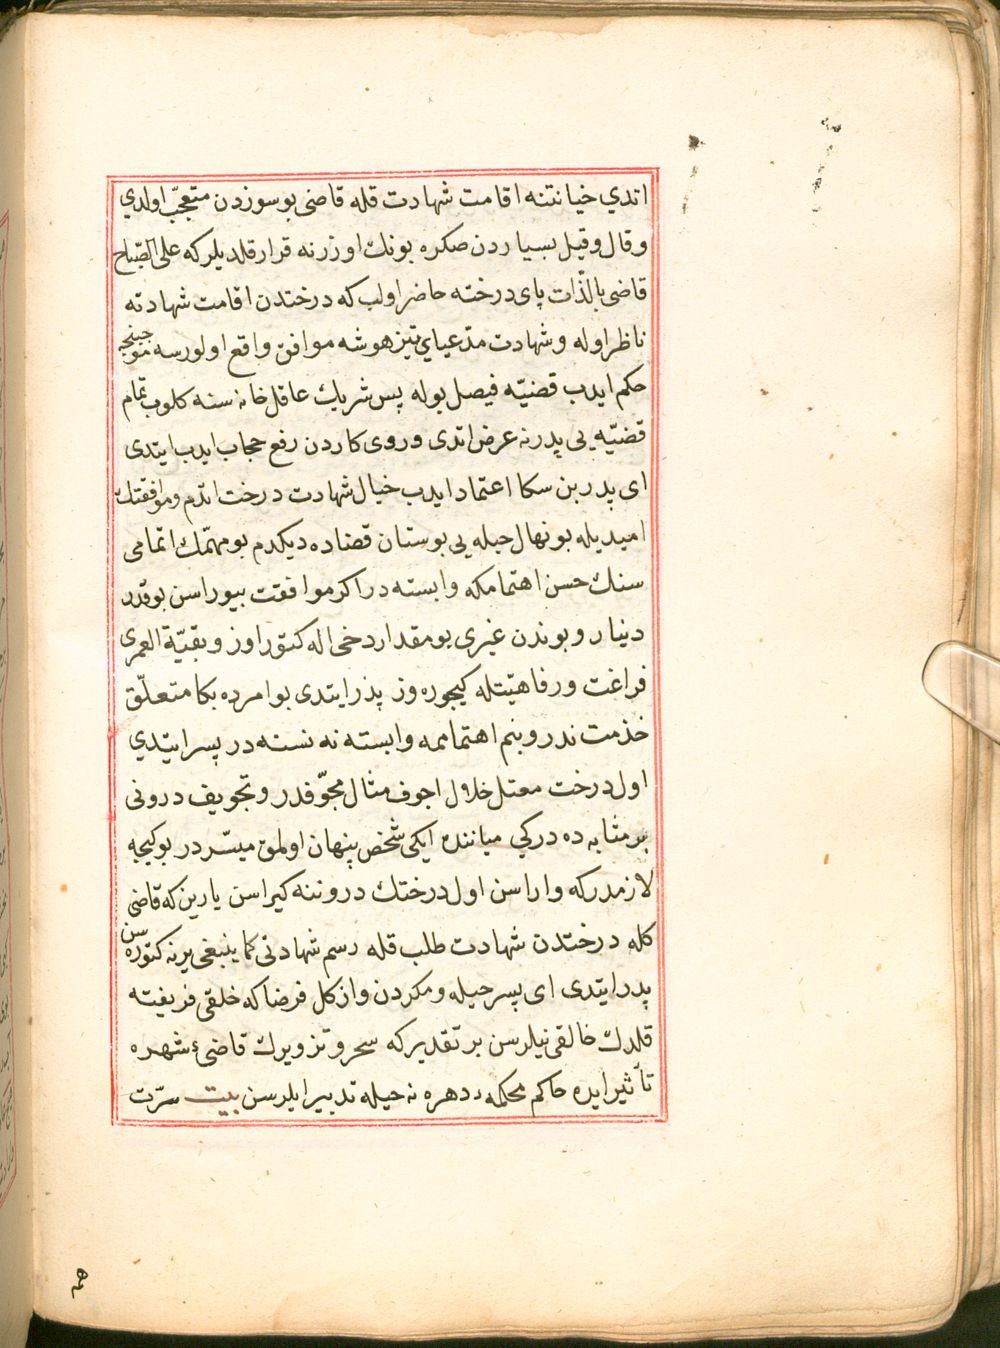 اتدي خيانتنه اقامت شهادت قله قاضى بو سوزدن متعجّب اولدي
و قال و قيل بسياردن صكره بونك اوزرنه قرار قلديلر كه على الصّباح
قاضى بالذّات پاى درخته حاضر اولب كه درختدن اقامت شهادته
ناظر اوله و شهادت مدّعياي تيز هوشه موافق واقع اولورسه موجبنجه
حكم ايدب قضيّه فيصل بوله پس شريك عاقل خانه سنه كلوب تمام
قضيّه يى پدرنه عرض اتدى و روى كاردن رفع حجاب ايدب ايتدى
اى پدر بن سكا اعتماد ايدب خيال شهادت درخت اتدم و موافقتك
اميديله بو نهال حيله يى بوستان قضاده ديكدم بو مهمّتك اتمامى
سنك حسن اهتمامكه وابسته در اكر موافقت بيوراسن بو قدر
دينار و بوندن غيرى بو مقدار دخى اله كتورراوز و بقيّة العمرى
فراغت و رفاهيّتله كيجوره وز پدر ايتدى بو امرده بكا متعلّق
خدمت ندر و بنم اهتماممه وابسته نه نسنه در پسر ايتدي
اول درخت معتل خلال اجوف مثال مجوّفدر و تجويف درونى
بر مثابه ده در كي ميانندە ايكى شخص پنهان اولمق ميسّردر بو كيجه
لازمدر كه واراسن اول درختك دروننه كيراسن يارين كه قاضى
كله درختدن شهادت طلب قله رسم شهادتى كما ينبغى يرينه كتوره سن
پدر ايتدى اى پسر حيله و مكردن واز كل فرضا كه خلقى فريفته
قلدك خالقى نيلرسن بر تقدير كه سحر و تزويرك قاضئ شهره
تأثير ايده حاكم محكمهء دهره نه حيله تدبير ايلرسن بيت سرّت
همه